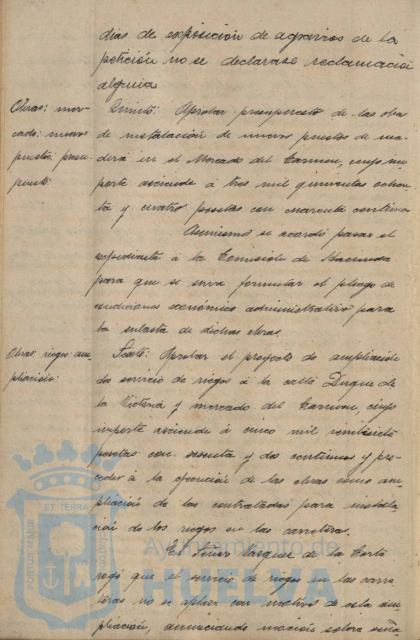 dias de exposición de agravios de la
petición no se declarase reclamación
alguna
Obras: mer-
cado: nuevos
puestos. presu-
puesto
Quinto: Aprobar presupuesto de las obras
de instalación de nuevos puestos de ma-
dera en el Mercado del Carmen, cuyo im-
porte asciende á tres mil quinientas ochen-
ta y cuatro pesetas con cuarenta centimos
Asimismo se acordó pasar el
expediente á la Comisión de Hacienda
para que se sirva formular el pliego de
condiciones económico administrativo para
la subasta de dichas obras.
Obras: riegos: am-
pliación:
Sexto: Aprobar el proyecto de ampliación
del servicio de riegos á la calle Duque de
la Victoria y mercado del Carmen, cuyo
importe asciende á cinco mil
pesetas con sesenta y dos centimos y pro-
ceder á la ejecución de las obras como am-
pliación de las contratadas para instala-
ción de los riegos en las carreteras.
El Señor Vazquez de la Corte
rogó que el servicio de riegos en las carre-
teras no se aplace con motivo de esta am-
pliación, anunciando moción sobre
PORTUS MARIS
ET TERRAE
CUSTODIA
Ayuntamiento de
HUELVA